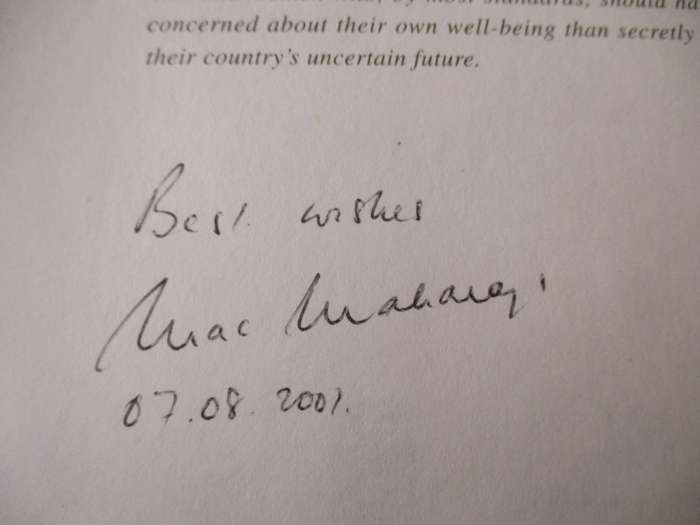 by most standards, should ha
concerned about their own well-being than secretly
their country's uncertain future.
Best wishes
Mac Maharaj
07.08.2001.